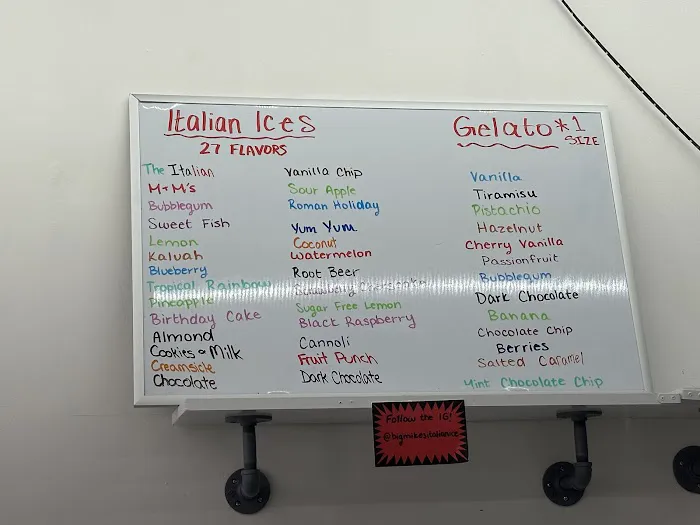 Italian Ices
27 FLAVORS
The Italian
M+M's
Bubblegum
Sweet Fish
Lemon
Kaluah
Blueberry
Tropical Rainbow
Pineapple
Birthday Cake
Almond
Cookies & Milk
Creamsicle
Chocolate
Vanilla Chip
Sour Apple
Roman Holiday
Yum Yum
Coconut
Watermelon
Root Beer
Sugar Free Lemon
Black Raspberry
Cannoli
Fruit Punch
Dark Chocolate
Gelato *1
SIZE
Vanilla
Tiramisu
Pistachio
Hazelnut
Cherry Vanilla
Passionfruit
Bubblegum
Dark Chocolate
Banana
Chocolate Chip
Berries
Salted Caramel
Mint Chocolate Chip
Follow the IG!
@bigmikesitalianice